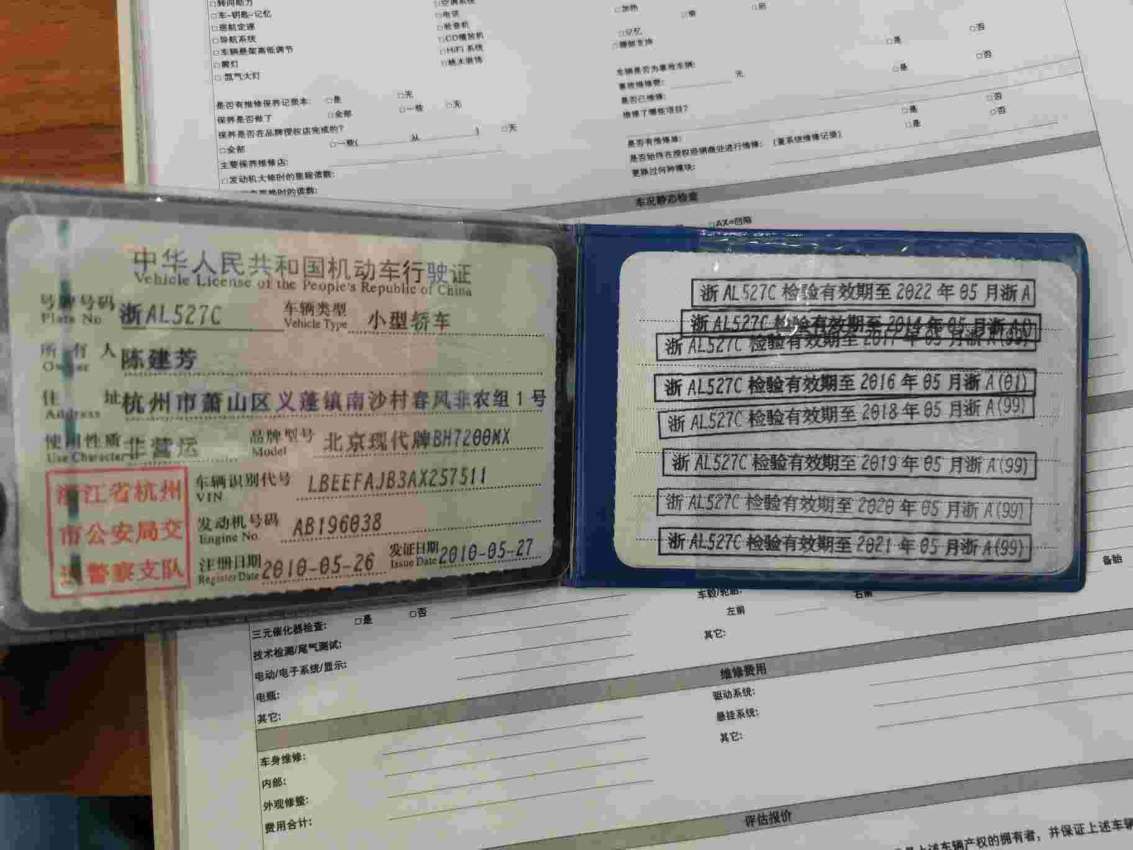 □转向助力
□车-钥匙-记忆
□巡航定速
□导航系统
□车辆悬架高低调节
□雾灯
□氙气大灯
□空调系统
□电话
□收音机
□CD播放机
□HiFi 系统
□桃木装饰
□加热
□记忆
□腰部支持
□是 □否
是否有维修保养记录本: □是 □无
保养是否做了 □全部 □一些 □无
保养是否在品牌授权店完成的?
□全部 □一些( 从 ) □无
主要保养维修店:
□发动机大修时的里程读数:
车辆是否为事故车辆: □是 □否
事故维修费: 元
是否已维修:
维修了哪些项目?
是否有维修单: □是 □否
是否始终在授权经销商处进行维修: (查系统维修记录) □是 □否
更换过何种模块:
车况静态检查
□AX=凹陷
中华人民共和国机动车行驶证
Vehicle License of the People's Republic of China
号牌号码 浙AL527C 车辆类型 小型轿车
Plate No. Vehicle Type
所有人 陈建芳
Owner
住址 杭州市萧山区义蓬镇南沙村春风非农组1号
Address
使用性质 非营运 品牌型号 北京现代牌BH7200MX
Use Character Model
浙江省杭州
市公安局交
通警察支队
车辆识别代号 LBEEFAJB3AX257511
VIN
发动机号码 AB196038
Engine No.
注册日期 2010-05-26 发证日期 2010-05-27
Register Date Issue Date
浙AL527C检验有效期至2022年05月浙A
浙AL527C检验有效期至2014年05月浙A
浙AL527C检验有效期至2017年05月浙A(99)
浙AL527C检验有效期至2016年05月浙A(01)
浙AL527C检验有效期至2018年05月浙A(99)
浙AL527C检验有效期至2019年05月浙A(99)
浙AL527C检验有效期至2020年05月浙A(99)
浙AL527C检验有效期至2021年05月浙A(99)
三元催化器检查: □是 □否
技术检测/尾气测试:
电动/电子系统/显示:
电瓶:
其它:
车毂/轮胎:
左前 右前 备胎
其它:
维修费用
车身维修:
内部:
外观修整:
费用合计:
驱动系统:
悬挂系统:
其它:
评估报价
上述车辆产权的拥有者，并保证上述车辆